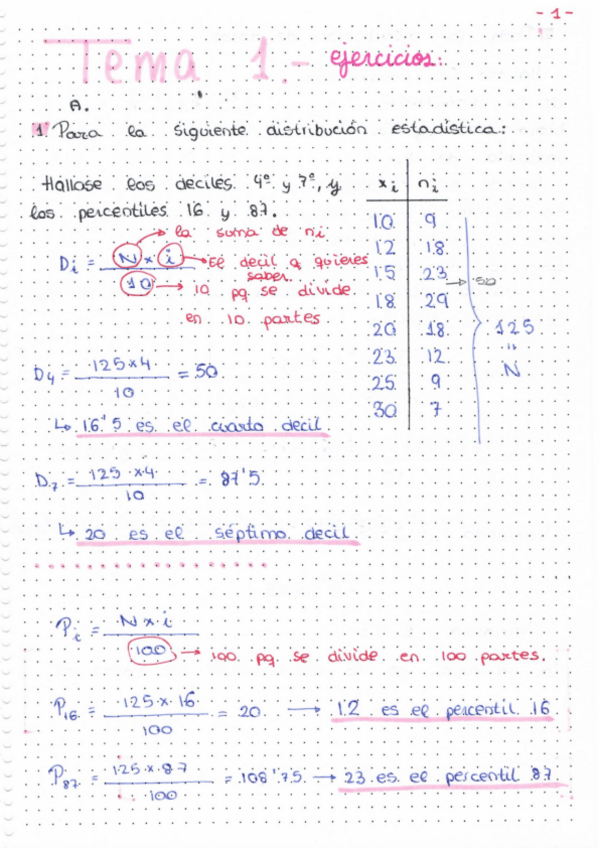 - 1 -
Tema 1.- ejercicios:
A.
1. Para la siguiente distribución estadística:
Hállase los deciles 4º y 7º, y
los percentiles 16 y 87.
xi ni
10 9
12 18
15 23 → 50
18 29
20 18
23 12
25 9
30 7
125
"
N
Di = N x i / 10
→ la suma de ni
→ el decil q quieres
saber
→ 10 pq se divide
en 10 partes
D4 = 125 x 4 / 10 = 50
↳ 16'5 es el cuarto decil
D7 = 125 x 4 / 10 = 87'5
↳ 20 es el séptimo decil
Pi = N x i / 100
→ 100 pq se divide en 100 partes.
P16 = 125 x 16 / 100 = 20 → 12 es el percentil 16
P87 = 125 x 87 / 100 = 108'75 → 23 es el percentil 87